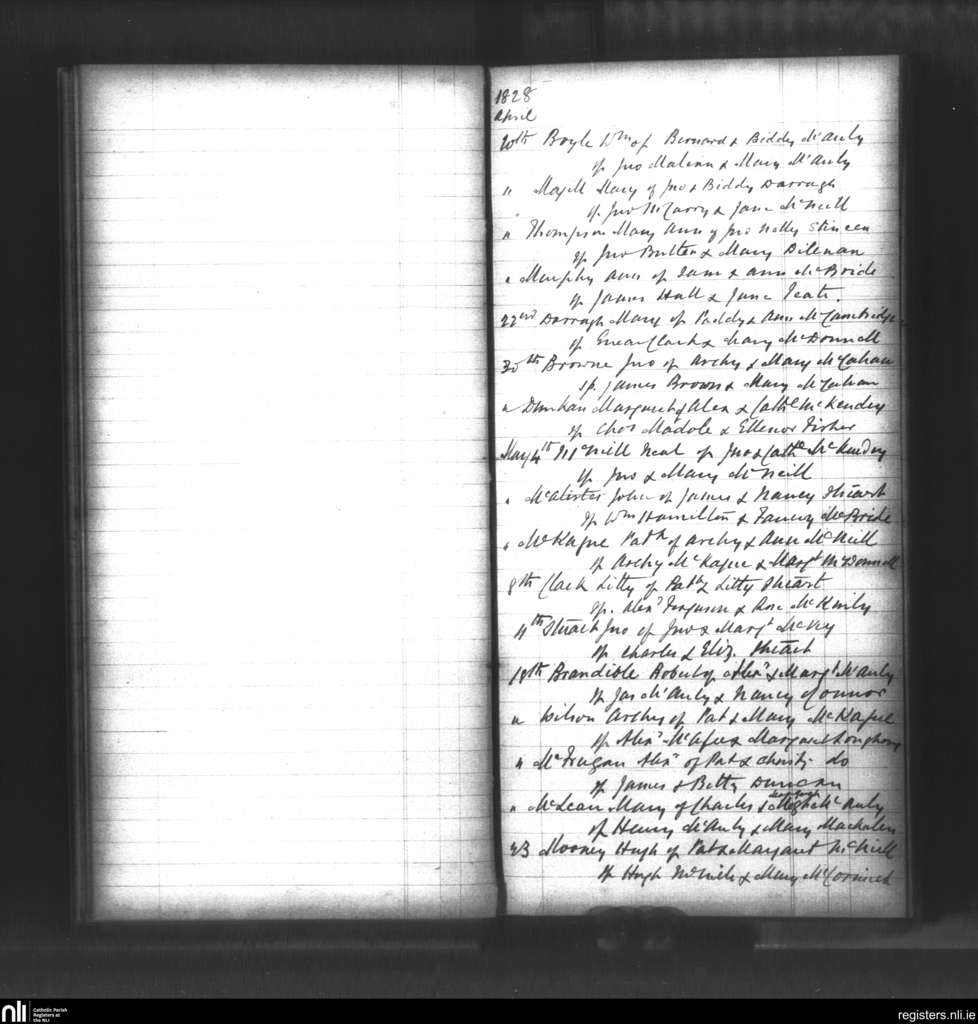 1828
April
20th Boyle Wm of Bernard & Biddy McAuly
sp Jno Malenn & Mary McAuly
" Magill Mary of Jno & Biddy Darragh
sp. Jno McCarry & Jane McNeill
" Thompson Mary Ann of Jno Nelly Skineen
sp Jno Butler & Mary Dilenan
" Murphy Ann of Sam & Ann McBride
sp James Hull & Jane
22nd Darragh Mary of Paddy & Ann McCambridge
sp Enear Clark & Mary McDonnell
30th Browne Jno of Archy & Mary McCahan
sp. James Brown & Mary McCahan
" Dunkan Margaret of Alex & Cathe McKendry
sp Chos Madole & Ellenor Fisher
May 4th McNeill Neal of Jno & Cathe McKendry
sp Jno & Mary McNeill
" McAlister John of James & Nancy Stuart
sp Wm Hamilton & Fanny McBride
" McKague Patk of Archy & Ann McNeill
sp Archy McKague & Margt McDonnell
8th Clark Litty of Patk & Litty Stuart
sp. Alexr Ferguson & Rose McKinly
11th Stuart Jno of Jno & Margt McVey
sp Charles & Eliz. Stuart
18th Brandible Robert of Alexr & Margt McAuly
sp Jas McAuly & Nancy OConnor
" Wilson Archy of Pat & Mary McKague
sp Alexr McAfee & Margaret
" McFragan Alexr of Pat & Christy do
sp James & Betty Duncan
" McLean Mary of Charles & McAuly
sp Henry McAuly & Mary
23 Mooney Hugh of Pat & Margaret McNeill
sp Hugh McNeill & Mary McCormick
nli
Catholic Parish
Registers at
the NLI
registers.nli.ie